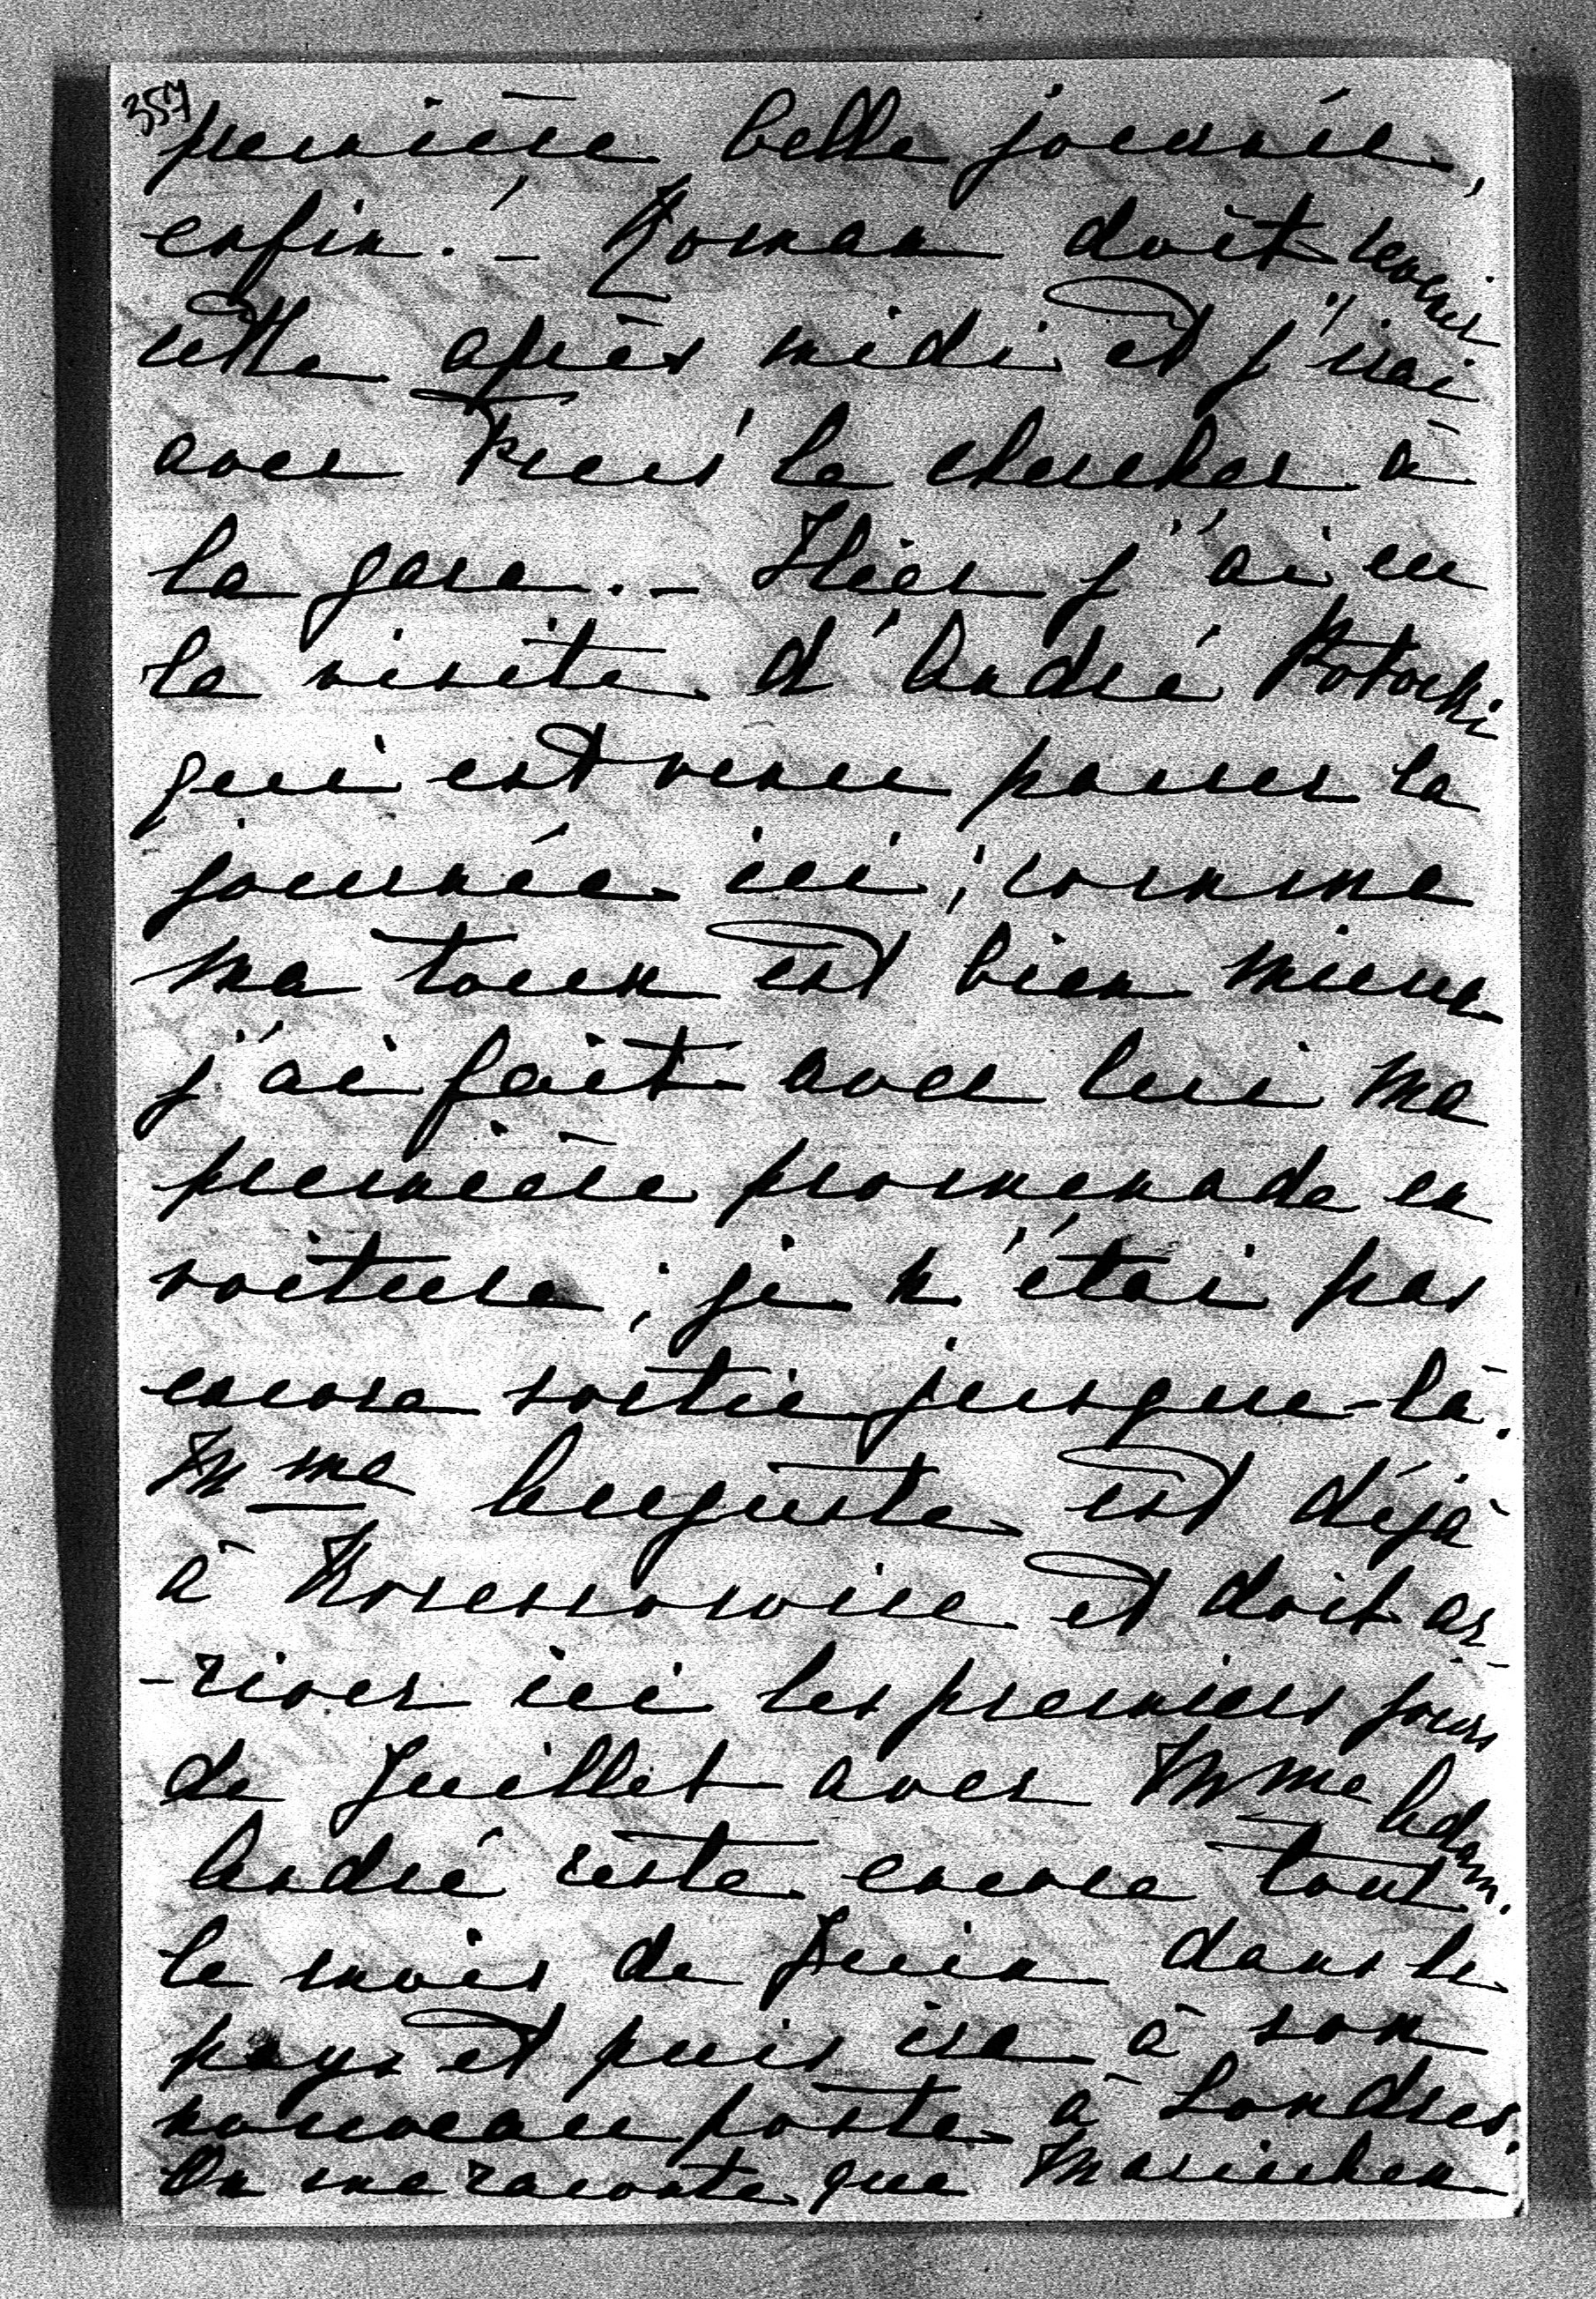 357
première belle journée,
enfin. – Roman doit revenir
cette après midi et j'irai
avec Pieri le chercher à
la gare. – Hier j'ai eu
la visite d'André Potocki
qui est venu passer la
journée ici; comme
ma toux est bien mieux
j'ai fait avec lui ma
première promenade en
voiture; je n'étai pas
encore sortie jusque-là.
Mme Auguste est déjà
à et doit ar-
-river ici les premiers jours
de Juillet avec Mme Adam.
André reste encore tout
le mois de Juin dans le
pays et puis ira à son
nouveau poste à Londres.
On me raconte que Mariechen